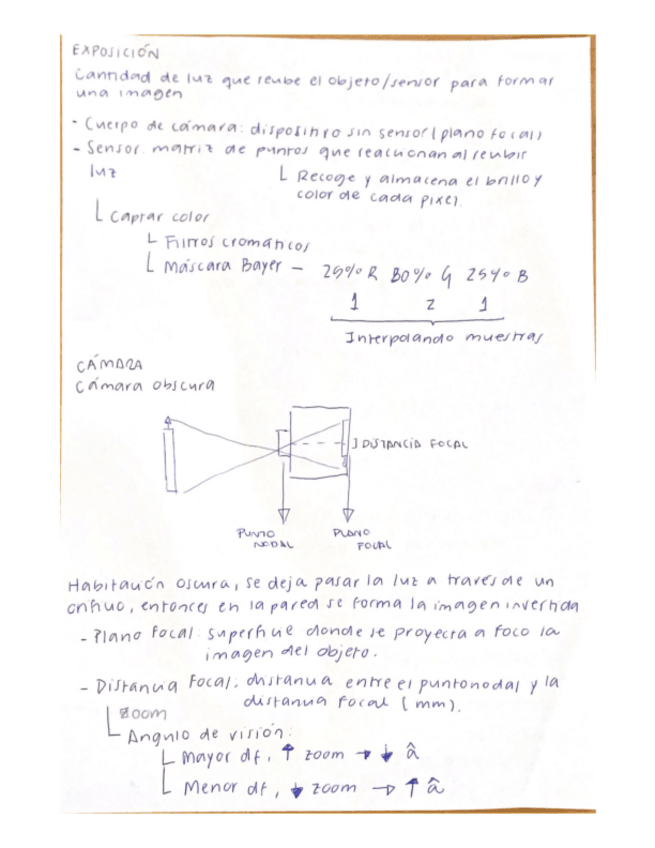 EXPOSICIÓN
Cantidad de luz que recibe el objeto/sensor para formar
una imagen
- Cuerpo de cámara: dispositivo sin sensor (plano focal)
- Sensor: matriz de puntos que reaccionan al recibir
luz
└ Recoge y almacena el brillo y
color de cada pixel.
└ Captar color
└ Filtros cromáticos
└ Máscara Bayer - 25% R 50% G 25% B
1 2 1
Interpolando muestras
CÁMARA
Cámara obscura
DISTANCIA FOCAL
PUNTO
NODAL
PLANO
FOCAL
Habitación oscura, se deja pasar la luz a través de un
orificio, entonces en la pared se forma la imagen invertida
- Plano focal: superficie donde se proyecta a foco la
imagen del objeto.
- Distancia Focal: distancia entre el punto nodal y la
distancia focal (mm).
└ Zoom
└ Angulo de visión:
└ Mayor df, ↑ zoom → ↓ â
└ Menor df, ↓ zoom → ↑ â